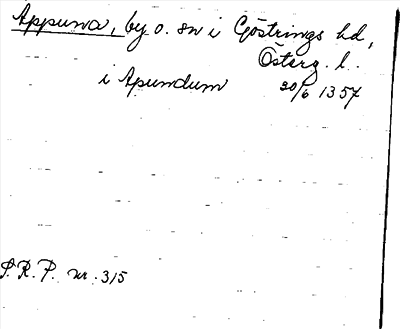 Appuna, by o. sn i Göstrings hd,
Österg. l.
i Apundum 20/6 1357
S.R.P. nr. 315